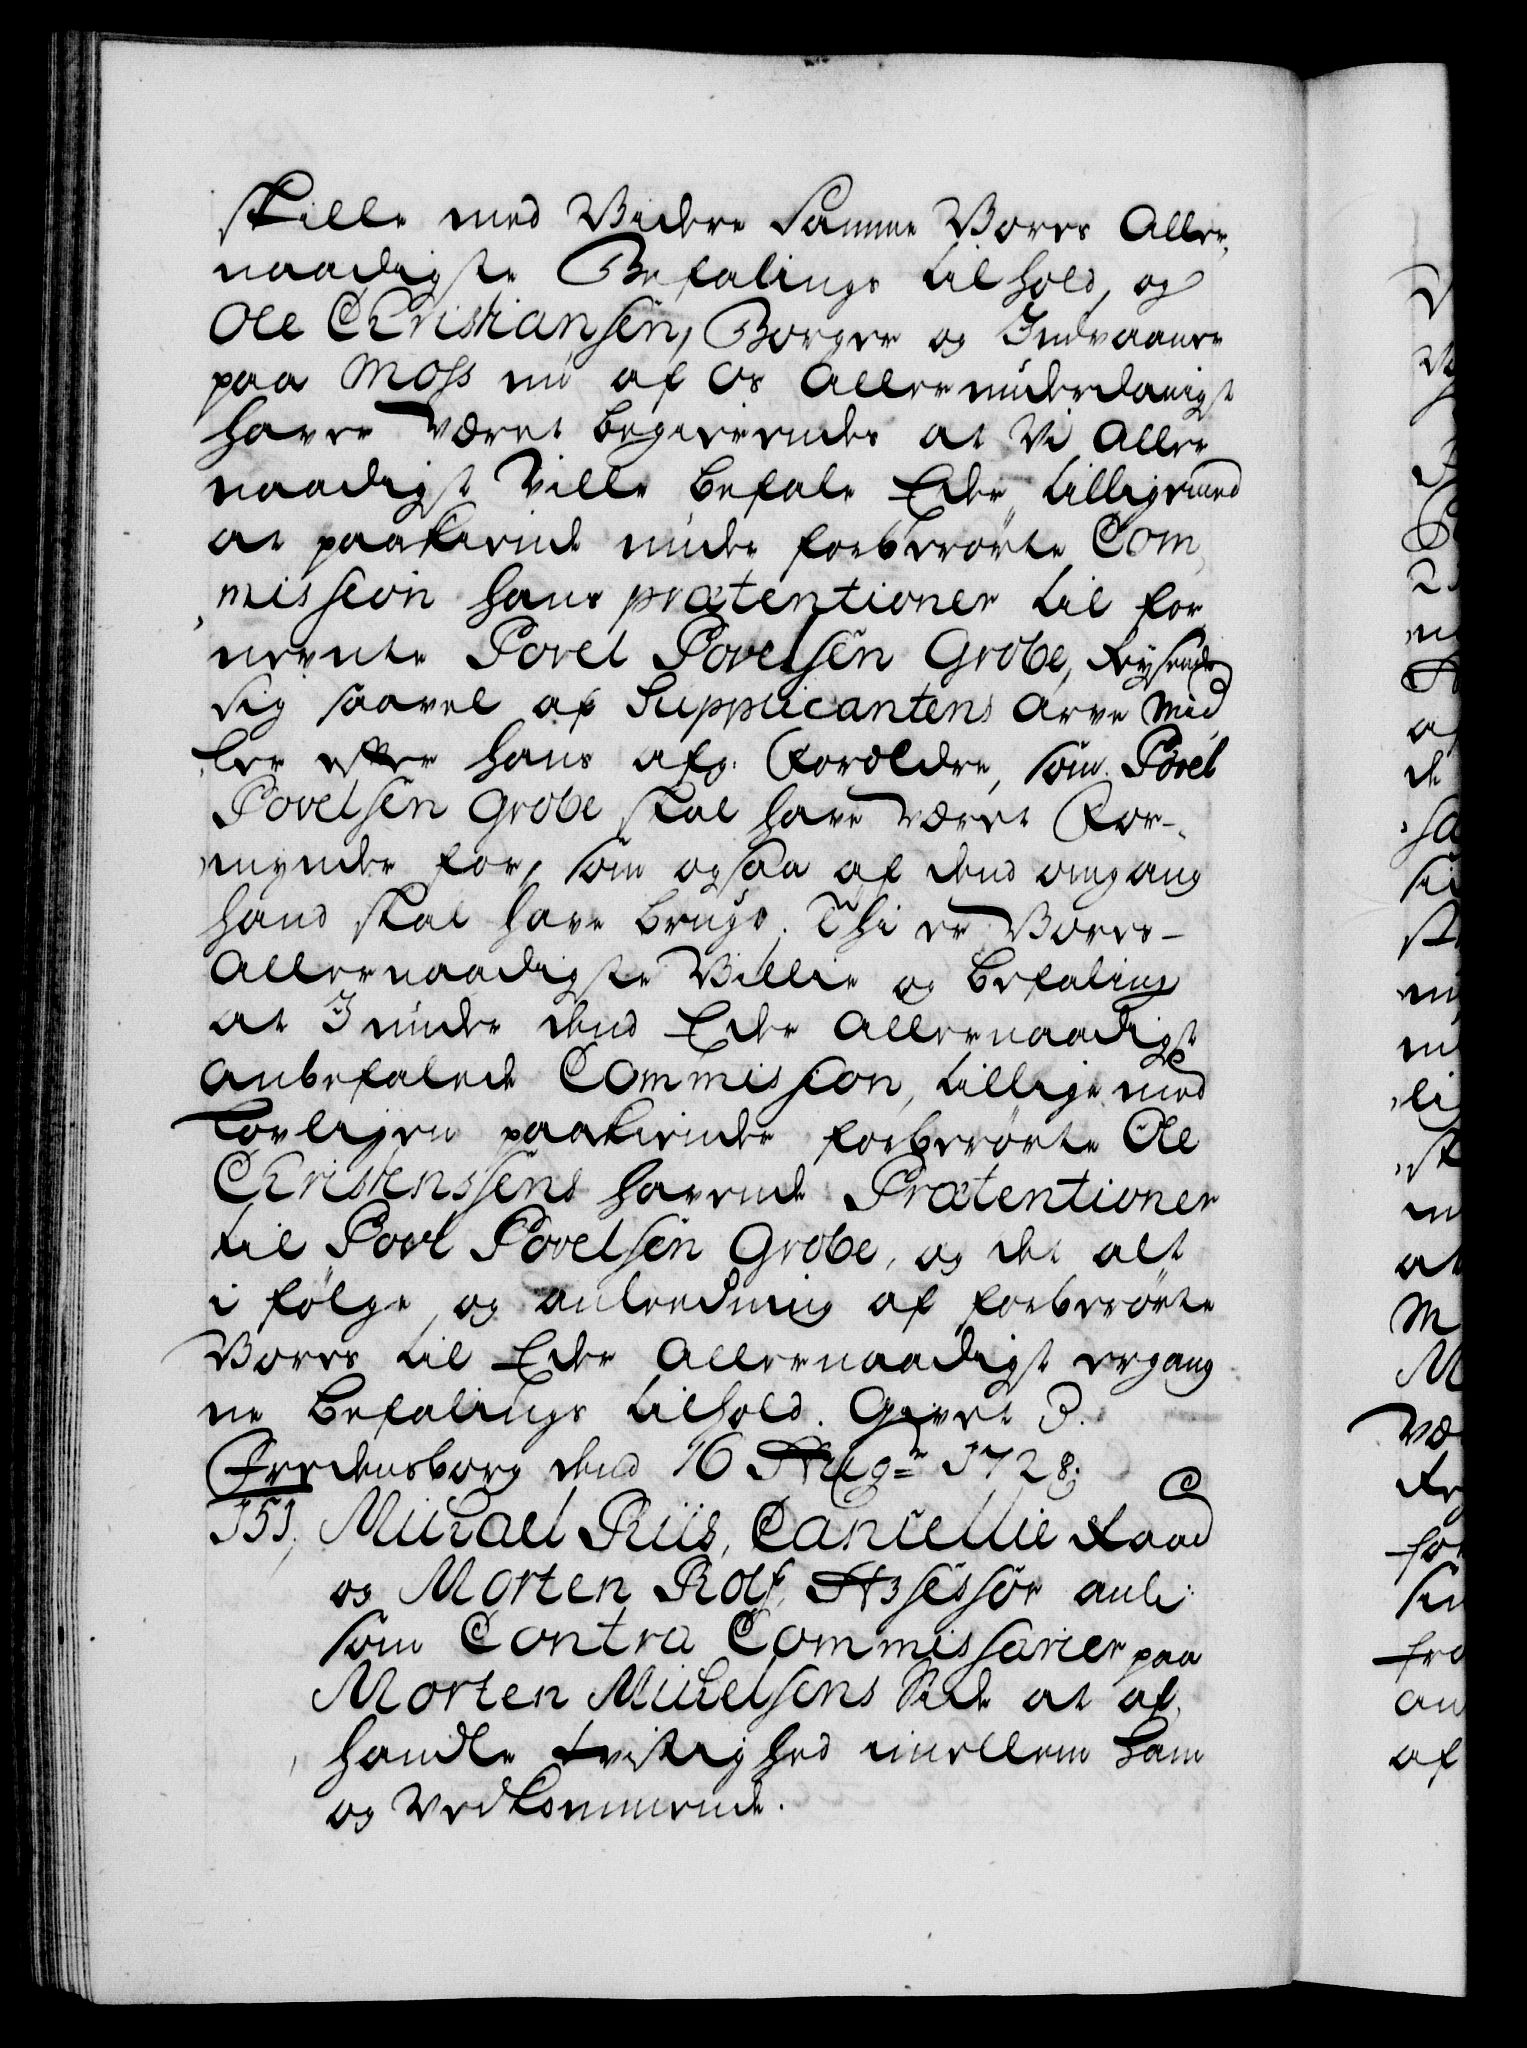 skille med Videre Samme Vores Aller,
naadigste Befalings tilhold, og
Ole Christiansen, Borger og Indvaaner
paa Moss nu af Os Allerunderdanigst
haver været begierendes at Vi Aller
naadigst Ville befale Eder, tilligemed
at paakiende under forberørte Com,
mission hans prætentioner til for,
nevnte Povel Povelsen Grobe, reysende
sig saavel af Supplicantens Arve Mid
ler efter hans afg. Forældre, som Povel
Povelsen Grobe skal have været For-
mynder for, som ogsaa af dend omgang
hand skal have brugt. Thi er Vores
Allernaadigste Villie og befaling
at I under dend Eder Allernaadigst
anbefalede Commission, tillige med
Lovligen paakiender forberørte Ole
Christenssens havende Prætentioner
til Povl Povelsen Grobe, og det alt
i følge og anledning af forberørte
Vores til Eder Allernaadigst ergang
ne befalings tilhold. Givet P.
Fredensborg dend 16 Aug: 1728.
151. Michael Riis, Cancellie Raad
og Morten Rolf, Assessor anl:
som Contra Commissarier paa
Morten Michelsens Side at af,
handle tvistighed imellem ham
og Vedkommende.